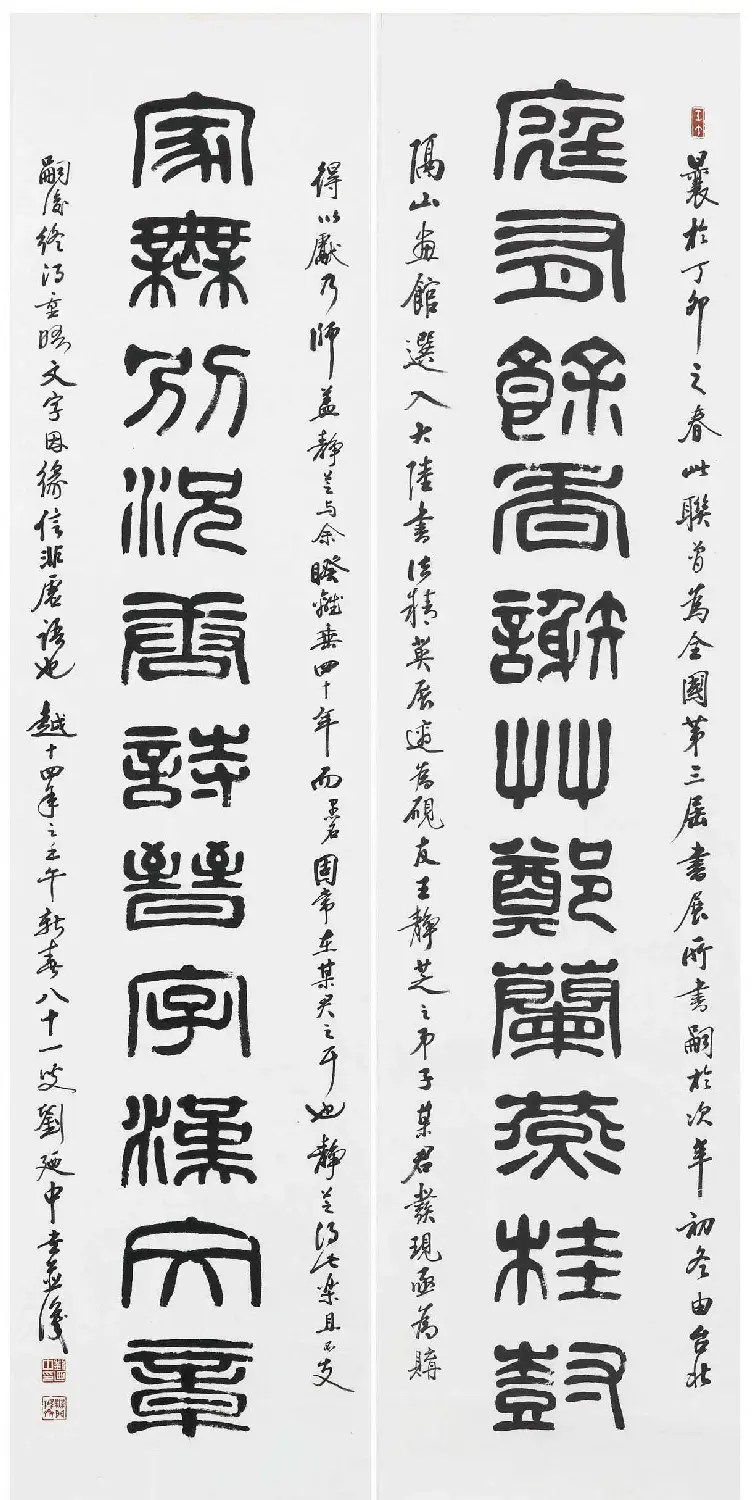 壬午
曩於丁卯之春此聯曾為全國第三屆書展所書嗣於次年初冬由台北
庭有餘香謝艸鄭蘭燕桂尌
隔山畫館選入大陸書法精英展適為硯友王靜芝之弟子某君發現亟為購
得以獻乃師蓋靜芝与余暌離垂四十年而名固常在某君之耳也靜芝得此樂且不支
家無別況唐詩晉字漢文章
嗣後終得重晤文字因緣信非虛語也 越十四年之壬午新春八十一叟劉廼中書並識